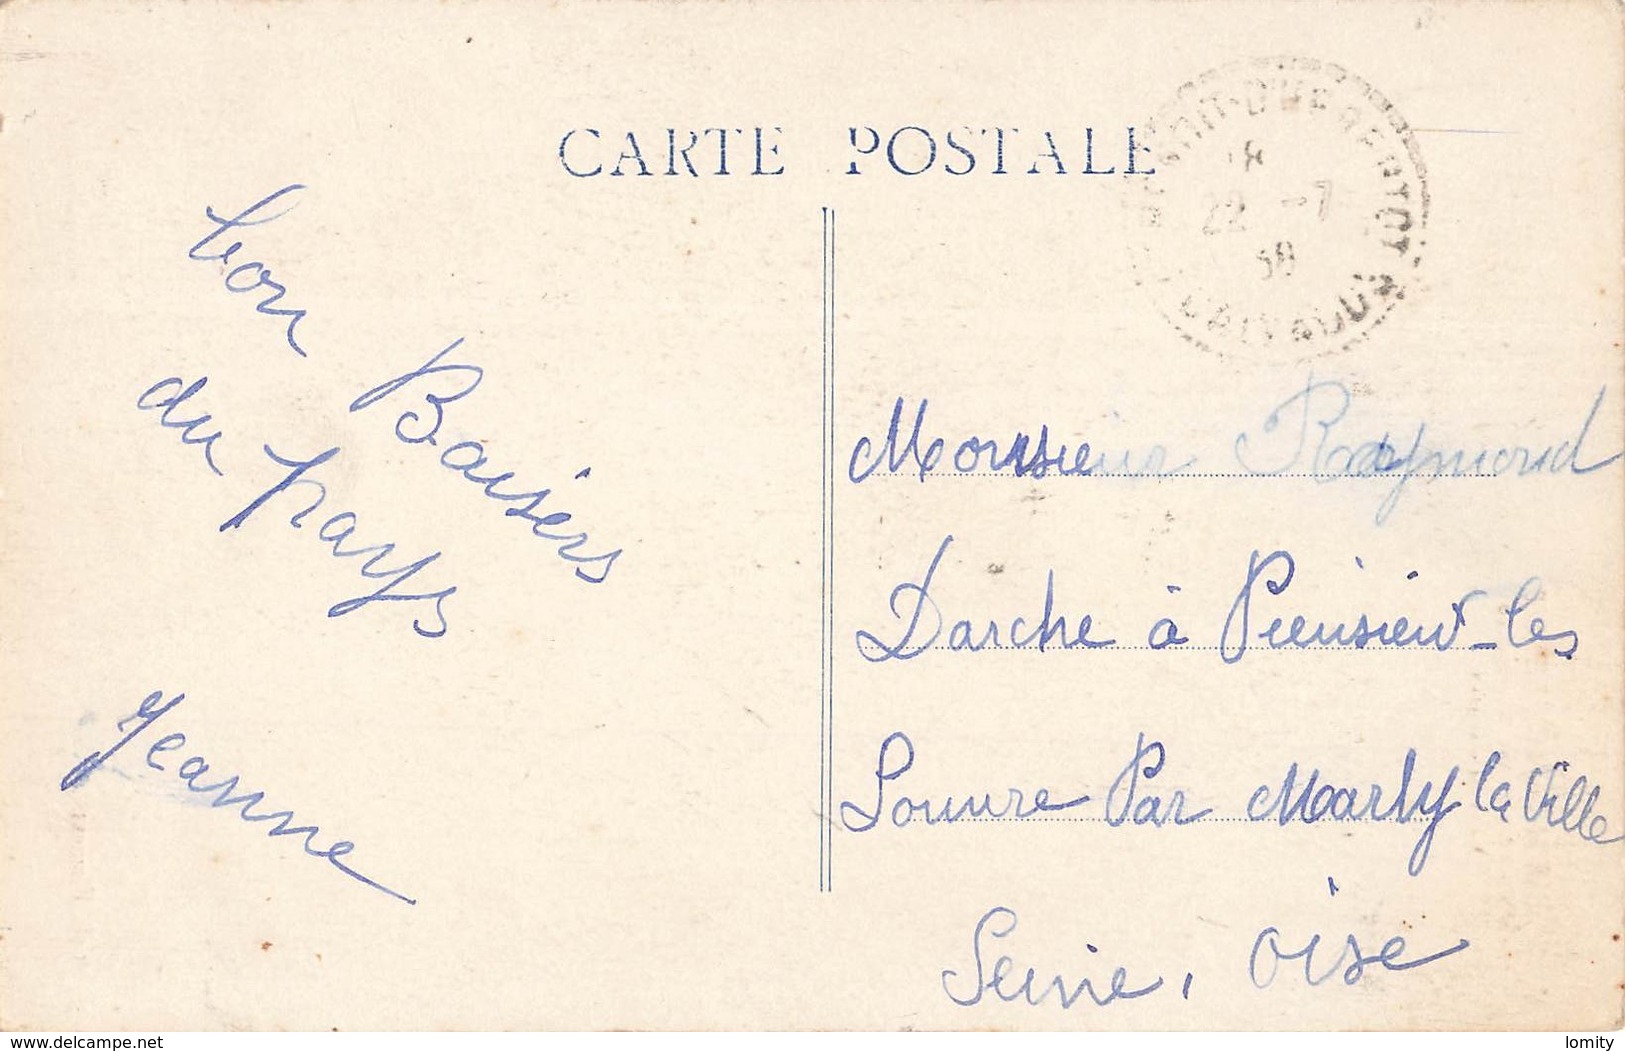 CARTE POSTALE
22 -7
bon Baisers
du pays
Jeanne
Monsieur Raymond
Darche à Puiisieux-les
Louvre Par Marly la Ville
Seine, Oise
www.delcampe.net
lomity